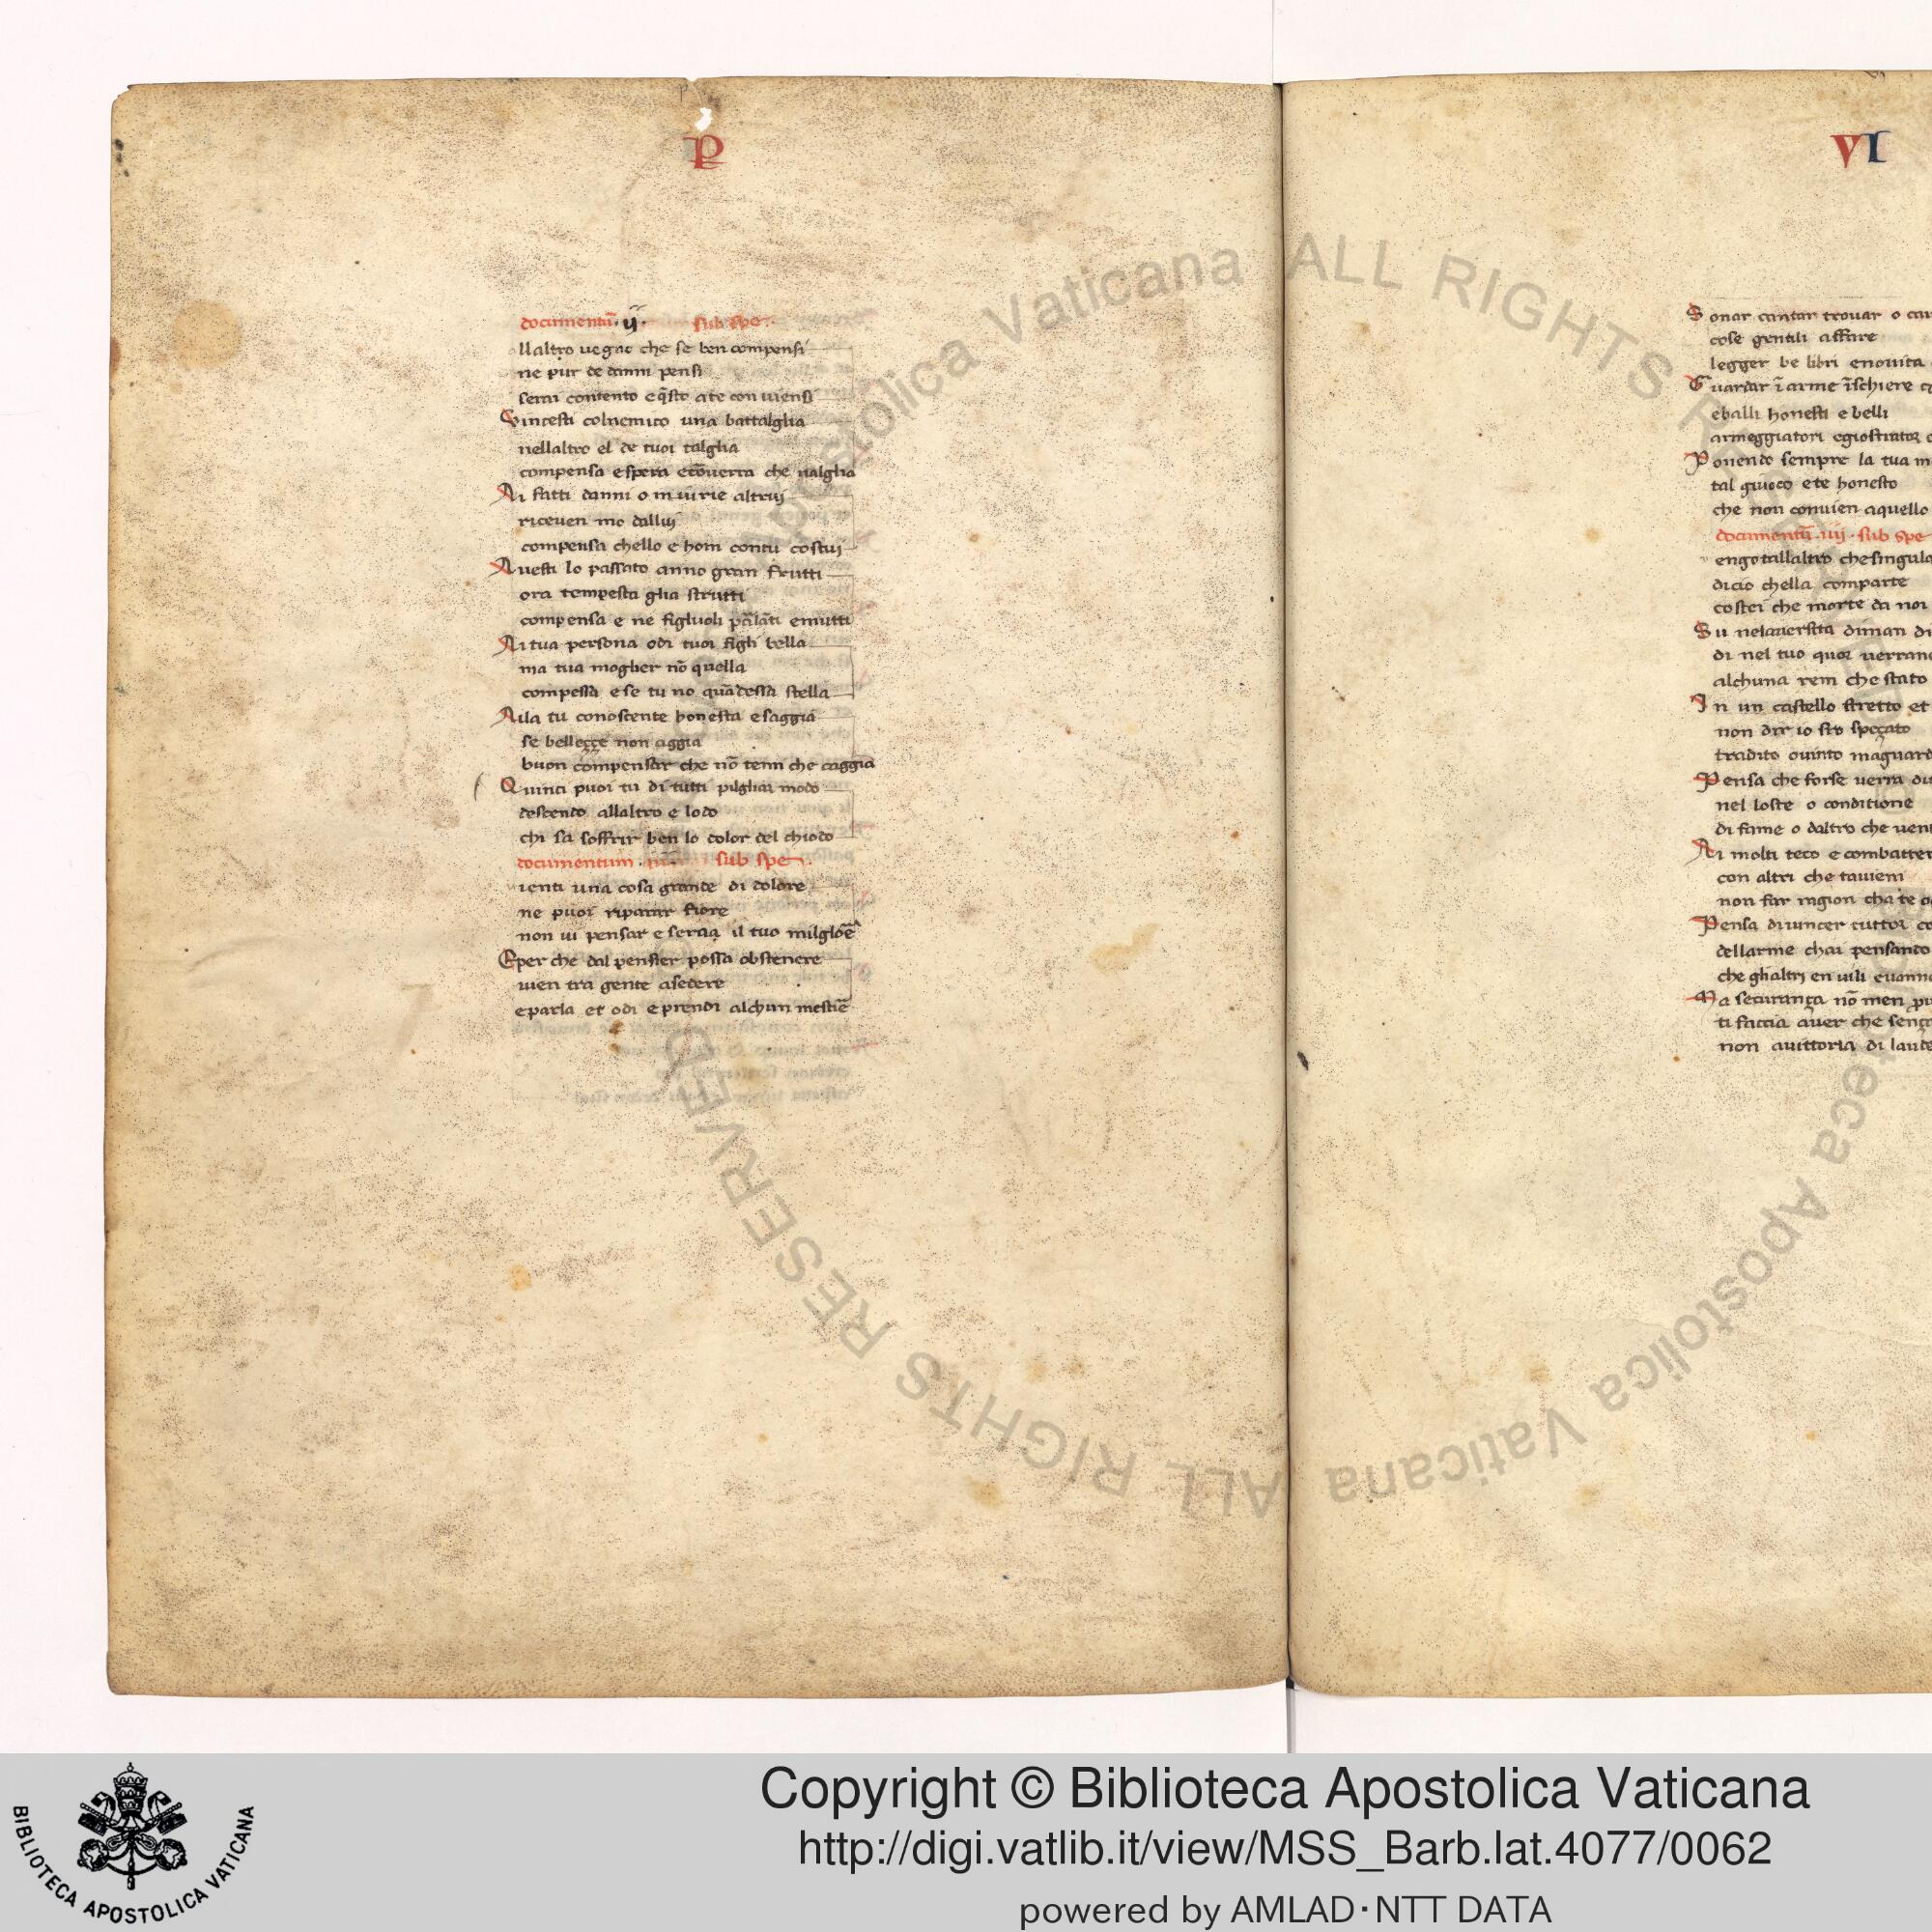 P
documentũ. ij. sub spe.
llaltro uegno che se ben compensi
ne pur de danni pensi
serai contento e q̃sto ate conuiensi
Vincesti colnemico una battalglia
nellaltro el de tuoi talglia
compensa espera ecõuerra che ualglia
Ai fatti danni o iniuirie altrui
riceuen mo dallui
compensa chello e hom contu costui
Auesti lo passato anno gran frutti
ora tempesta glia strutti
compensa e ne figluoli emutti
Ai tua persona odi tuoi figli bella
ma tua mogher nõ quella
compessa e se tu no stella
Aila tu conoscente honesta esaggia
se belleççe non aggia
buon compensar che nõ temi che caggia
Quinci puoi tu di tutti pilgliar modo
descendo allaltro e lodo
chi sa soffrir ben lo color del chiodo
documentum. sub spe.
ienti una cosa grande di dolore
ne puoi riparar fiore
non ui pensar e seraq il tuo milglore
Eper che dal pensier possa obstenere
uien tra gente asedere
eparla et odi eprendi alchun mestiẽ
VI
Sonar cantar trouar o
cose gentili affare
legger be libri enouita
Guardar ĩ arme ĩschiere
eballi honesti e belli
armeggiatori egiostrator
Ponendo sempre la tua
tal giuoco ete honesto
che non conuien aquello
documentũ. iiij. sub spe
engo tallaltro chesingula
dicio chella comparte
costei che morte da noi
Su nelauersita diman
di nel tuo quor uerrano
alchuna rem che stato
In un castello stretto et
non dir io sto speçato
tradito ouinto
Pensa che forse uerra
nel loste o conditione
di fame o daltro che
Ai molti teco e combatter
con altri che tauiem
non far ragion cha te
Pensa diuincer tuttor
dellarme chai pensando
che ghaltri en uili
Ma securança nõ men
ti faccia auer che
non auittoria di laude
Copyright © Biblioteca Apostolica Vaticana
http://digi.vatlib.it/view/MSS_Barb.lat.4077/0062
powered by AMLAD·NTT DATA
BIBLIOTECA APOSTOLICA VATICANA